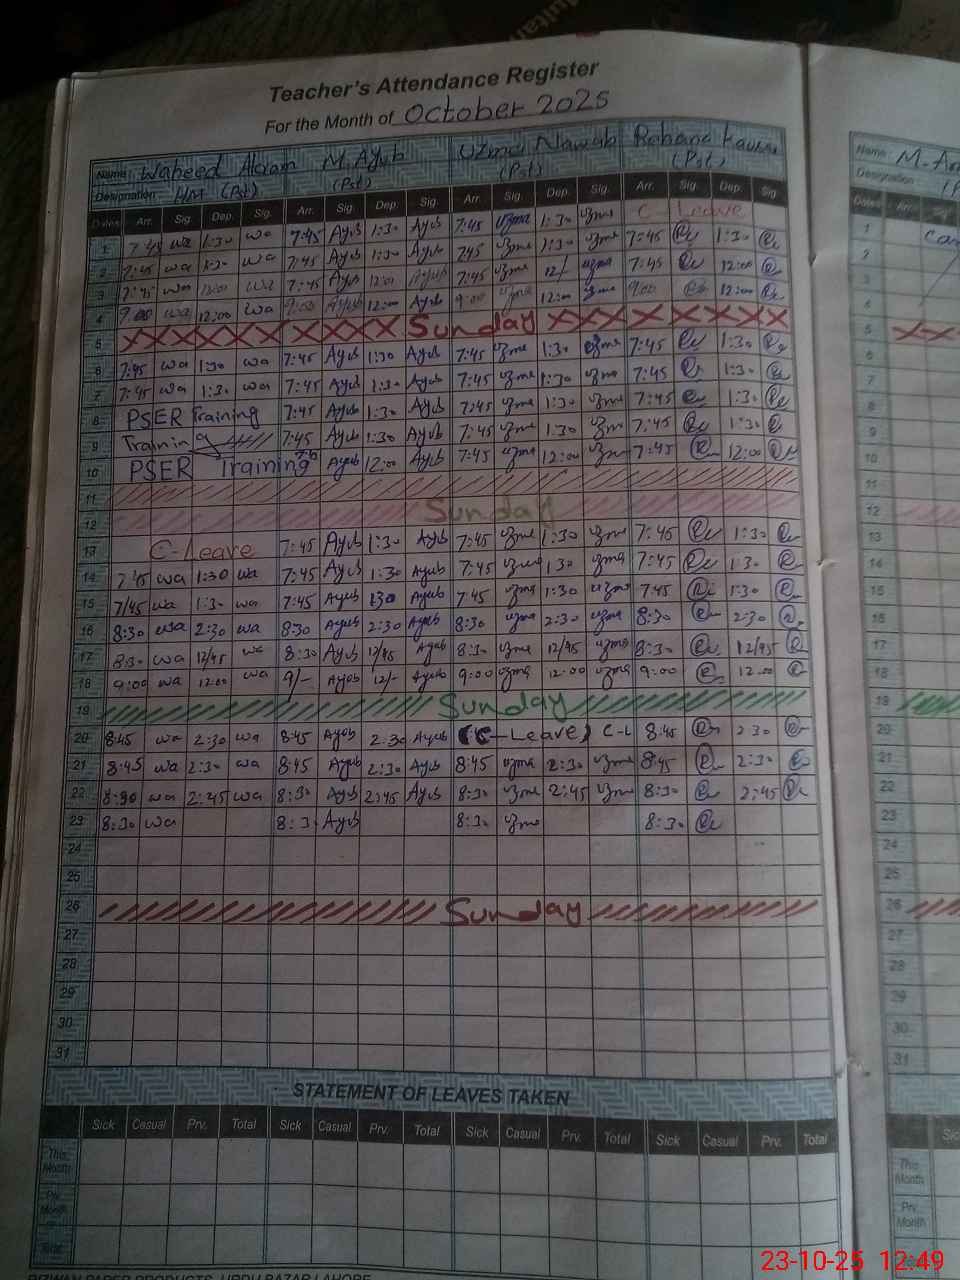 Multan
Teacher's Attendance Register
For the Month of October 2025
Name: Waheed Akram M. Ayub Uzma Nawab Rehana Kausar
Designation HM (Pst) (Pst) (Pst) (Pst)
Dates Arr. Sig. Dep. Sig. Arr. Sig. Dep. Sig. Arr. Sig. Dep. Sig. Arr. Sig. Dep. Sig.
1 7:45 wa 1:30 wa 7:45 Ayub 1:30 Ayub 7:45 uzma 1:30 uzma C-Leave
2 7:45 wa 1:30 wa 7:45 Ayub 1:30 Ayub 7:45 uzma 1:30 uzma 7:45 1:30
3 7:45 wa 12:00 wa 7:45 Ayub 12:00 Ayub 7:45 uzma 12/ uzma 7:45 12:00
4 9:00 wa 12:00 wa 9:00 Ayub 12:00 Ayub 9:00 uzma 12:00 uzma 9:00 12:00
5 Sunday
6 7:45 wa 1:30 wa 7:45 Ayub 1:30 Ayub 7:45 uzma 1:30 uzma 7:45 1:30
7 7:45 wa 1:30 wa 7:45 Ayub 1:30 Ayub 7:45 uzma 1:30 uzma 7:45 1:30
8 PSER Training 7:45 Ayub 1:30 Ayub 7:45 uzma 1:30 uzma 7:45 1:30
9 Training 7:45 Ayub 1:30 Ayub 7:45 uzma 1:30 uzma 7:45 1:30
10 PSER Training Ayub 12:00 Ayub 7:45 uzma 12:00 uzma 7:45 12:00
11
12 Sunday
13 C-Leave 7:45 Ayub 1:30 Ayub 7:45 uzma 1:30 uzma 7:45 1:30
14 7:45 wa 1:30 wa 7:45 Ayub 1:30 Ayub 7:45 uzma 1:30 uzma 7:45 1:30
15 7/45 wa 1:30 wa 7:45 Ayub 130 Ayub 7:45 uzma 1:30 uzma 7:45 1:30
16 8:30 wa 2:30 wa 8:30 Ayub 2:30 Ayub 8:30 uzma 2:30 uzma 8:30 2:30
17 8:30 wa 12/45 wa 8:30 Ayub 12/45 Ayub 8:30 uzma 12/45 uzma 8:30 12/45
18 9:00 wa 12:00 wa 9/- Ayub 12/- Ayub 9:00 uzma 12:00 uzma 9:00 12:00
19 Sunday
20 8:45 wa 2:30 wa 8:45 Ayub 2:30 Ayub (C-Leave) C-L 8:45 2:30
21 8:45 wa 2:30 wa 8:45 Ayub 2:30 Ayub 8:45 uzma 2:30 uzma 8:45 2:30
22 8:30 wa 2:45 wa 8:30 Ayub 2:45 Ayub 8:30 uzma 2:45 uzma 8:30 2:45
23 8:30 wa 8:30 Ayub 8:30 uzma 8:30
24
25
26 Sunday
27
28
29
30
31
STATEMENT OF LEAVES TAKEN
Sick Casual Prv. Total Sick Casual Prv. Total Sick Casual Prv. Total Sick Casual Prv. Total
This Month
Prv. Month
Total
RIZWAN PAPER PRODUCTS, URDU BAZAR LAHORE
Name: M.
Designation
Dates Arr.
1
2
3
4
5
6
7
8
9
10
11
12
13
14
15
16
17
18
19
20
21
22
23
24
25
26
27
28
29
30
31
This Month
Prv. Month
23-10-25 12:49